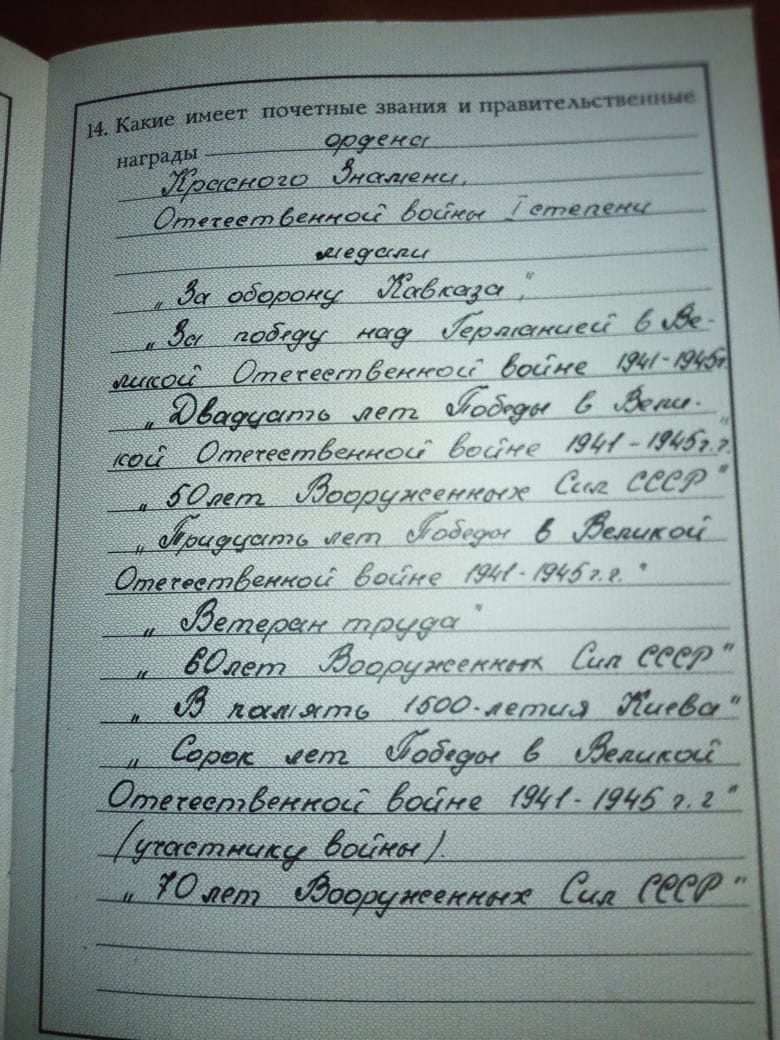 14. Какие имеет почетные звания и правительственные
награды ордена
Красного Знамени,
Отечественной войны I степени
медали
„За оборону Кавказа",
„За победу над Германией в Ве-
ликой Отечественной войне 1941-1945г.
„Двадцать лет Победы в Вели-
кой Отечественной войне 1941-1945г.г."
„50 лет Вооруженных Сил СССР"
„Тридцать лет Победы в Великой
Отечественной войне 1941-1945г.г."
„Ветеран труда"
„60 лет Вооруженных Сил СССР"
„В память 1500-летия Киева"
„Сорок лет Победы в Великой
Отечественной войне 1941-1945 г.г"
(участнику войны).
„70 лет Вооруженных Сил СССР"